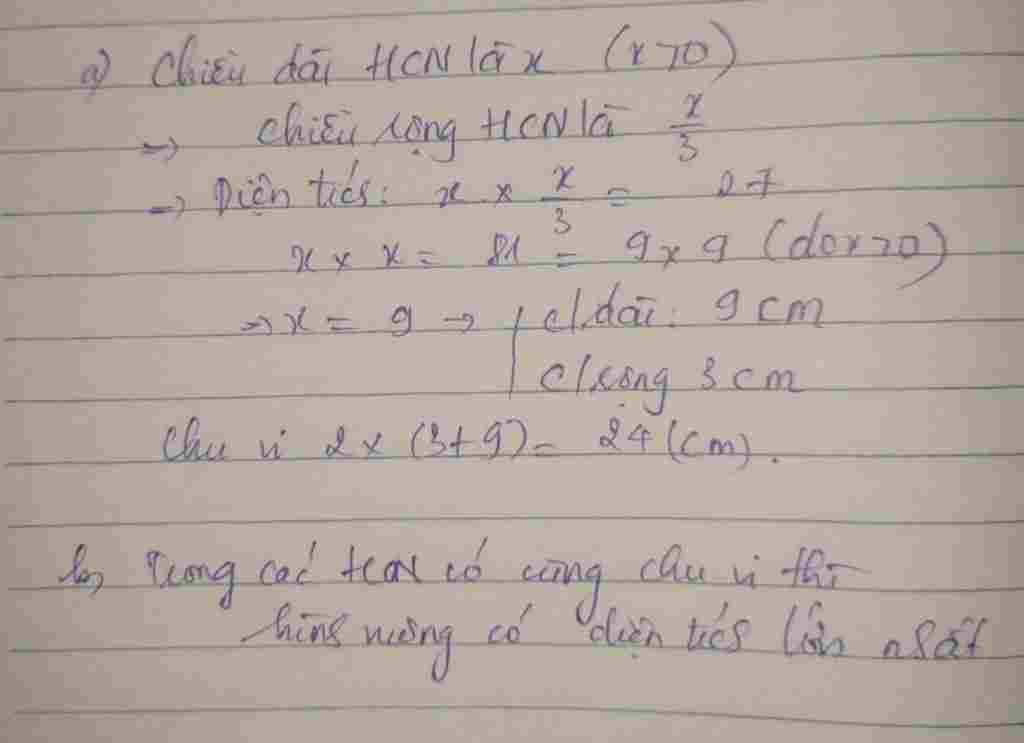 a) Chiều dài HCN là x (x>0)
=> chiều rộng HCN là x/3
=> Diện tích: x × x/3 = 27
x × x = 81 = 9 × 9 (do x>0)
=> x = 9 → | c/dài: 9 cm
| c/rộng 3 cm
Chu vi 2 × (3+9) = 24 (cm).
b, Trong các HCN có cùng chu vi thì
hình vuông có diện tích lớn nhất